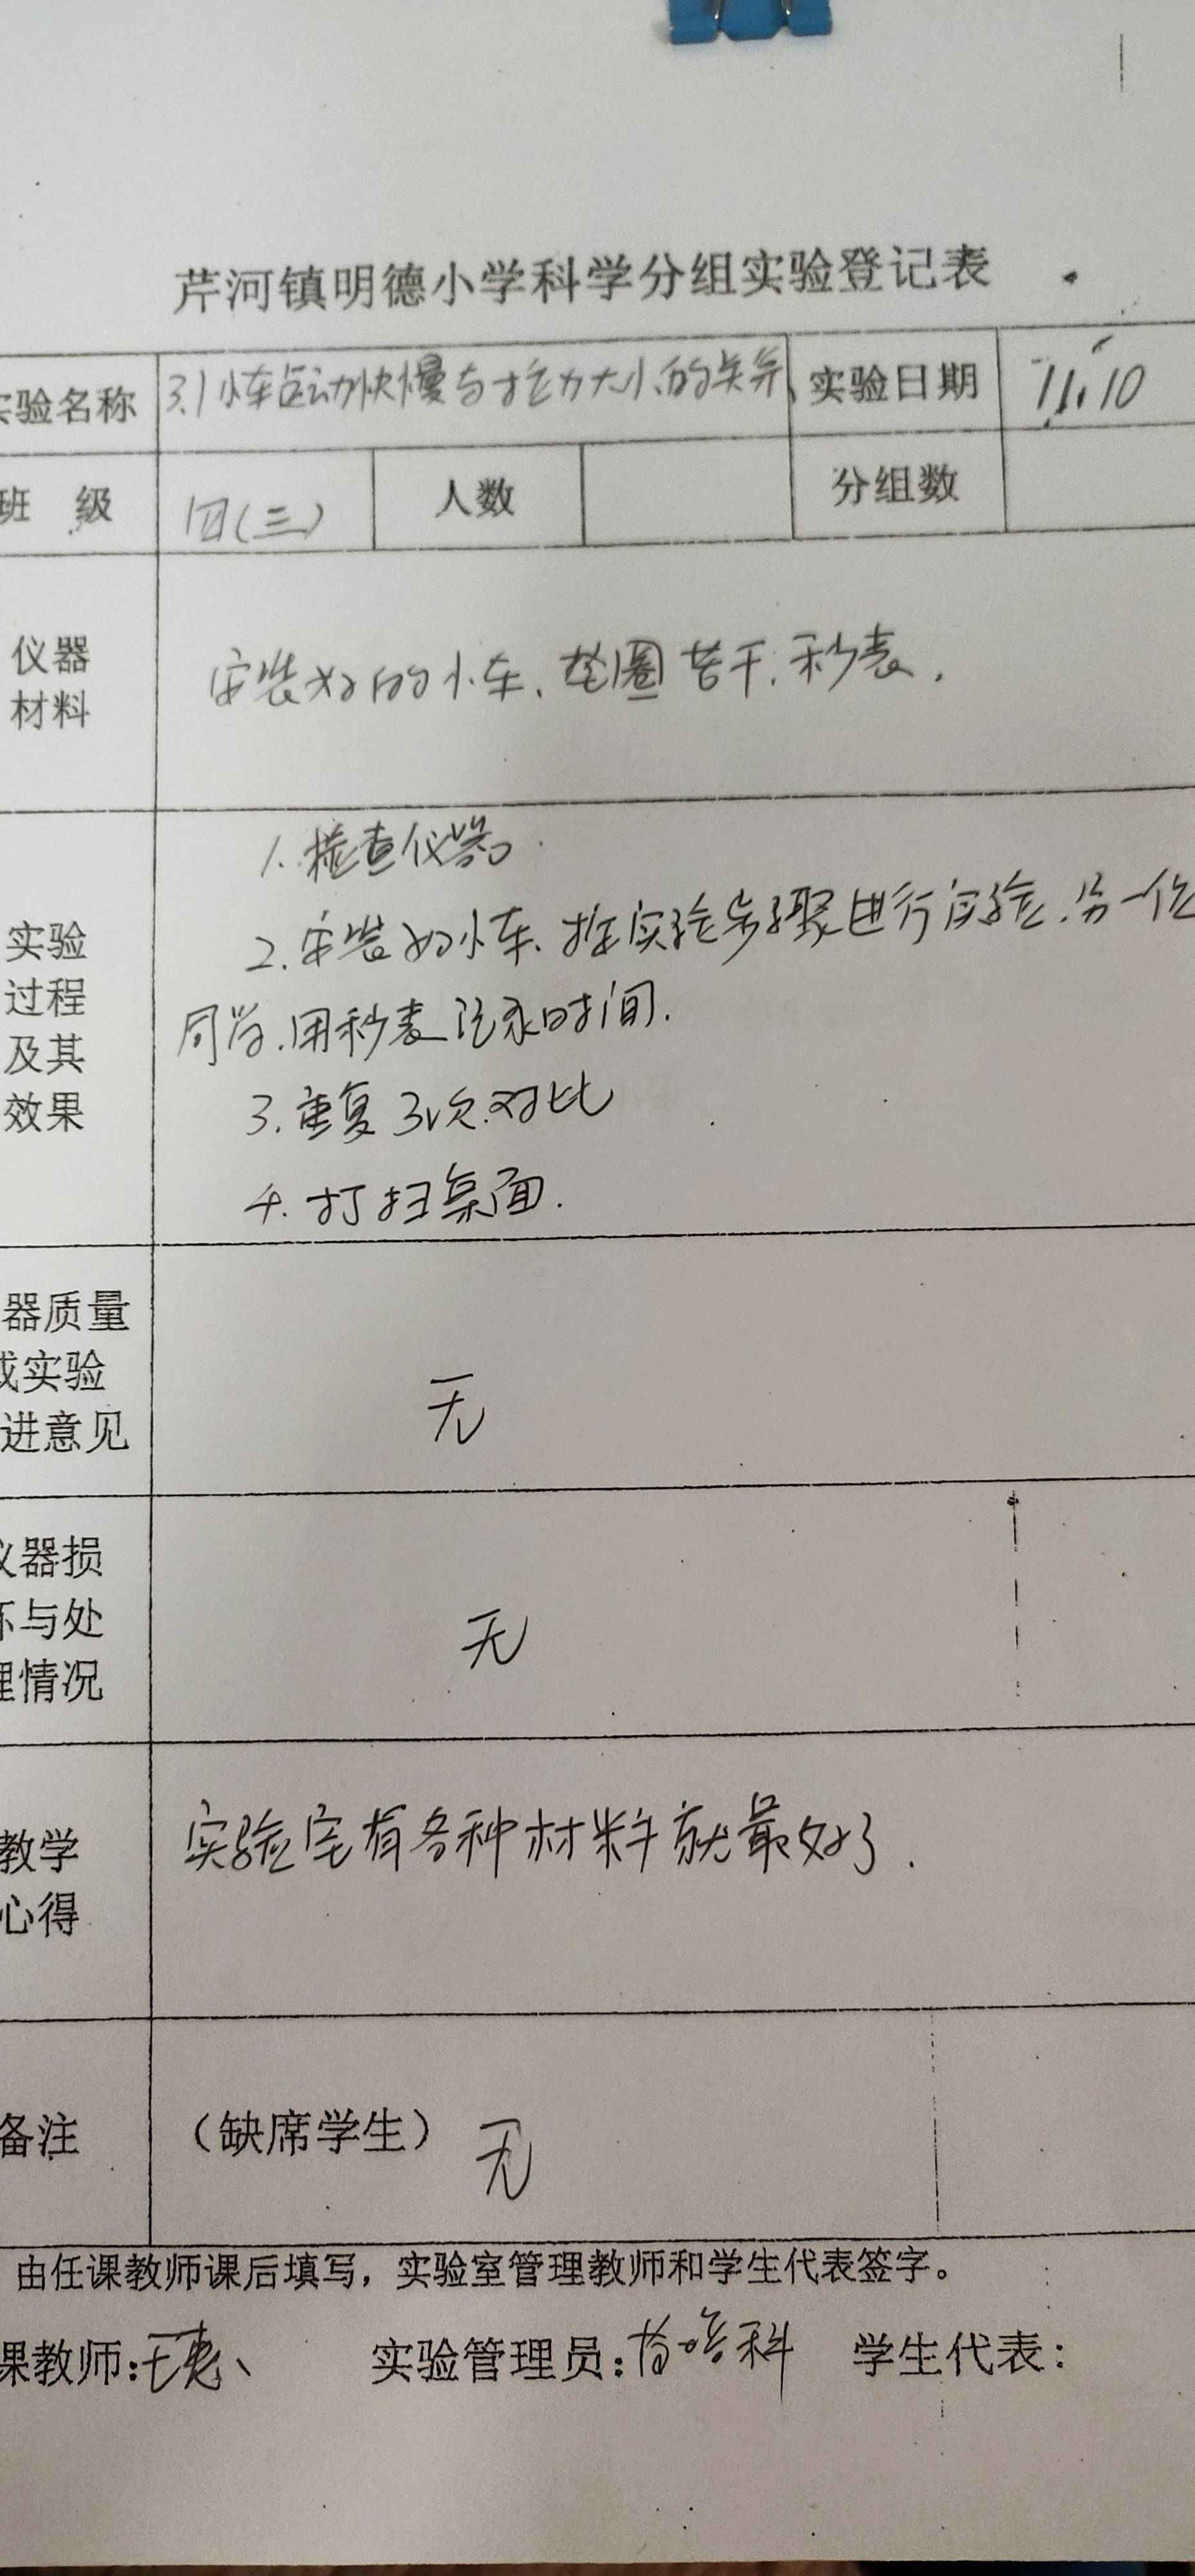 芹河镇明德小学科学分组实验登记表
实验名称 3.1小车运动快慢与拉力大小的关系 实验日期 11.10
班 级 四(三) 人数 分组数
仪器
材料
安装好的小车、垫圈若干、秒表.
1.检查仪器
实验
过程
及其
效果
2.安装好小车、按实验步骤进行实验.另一位
同学.用秒表记录时间.
3.重复3次.对比
4.打扫桌面.
器质量
或实验
进意见
无
仪器损
坏与处
理情况
无
教学
心得
实验室有各种材料就最好了.
备注 （缺席学生） 无
由任课教师课后填写，实验室管理教师和学生代表签字。
课教师: 实验管理员: 学生代表: